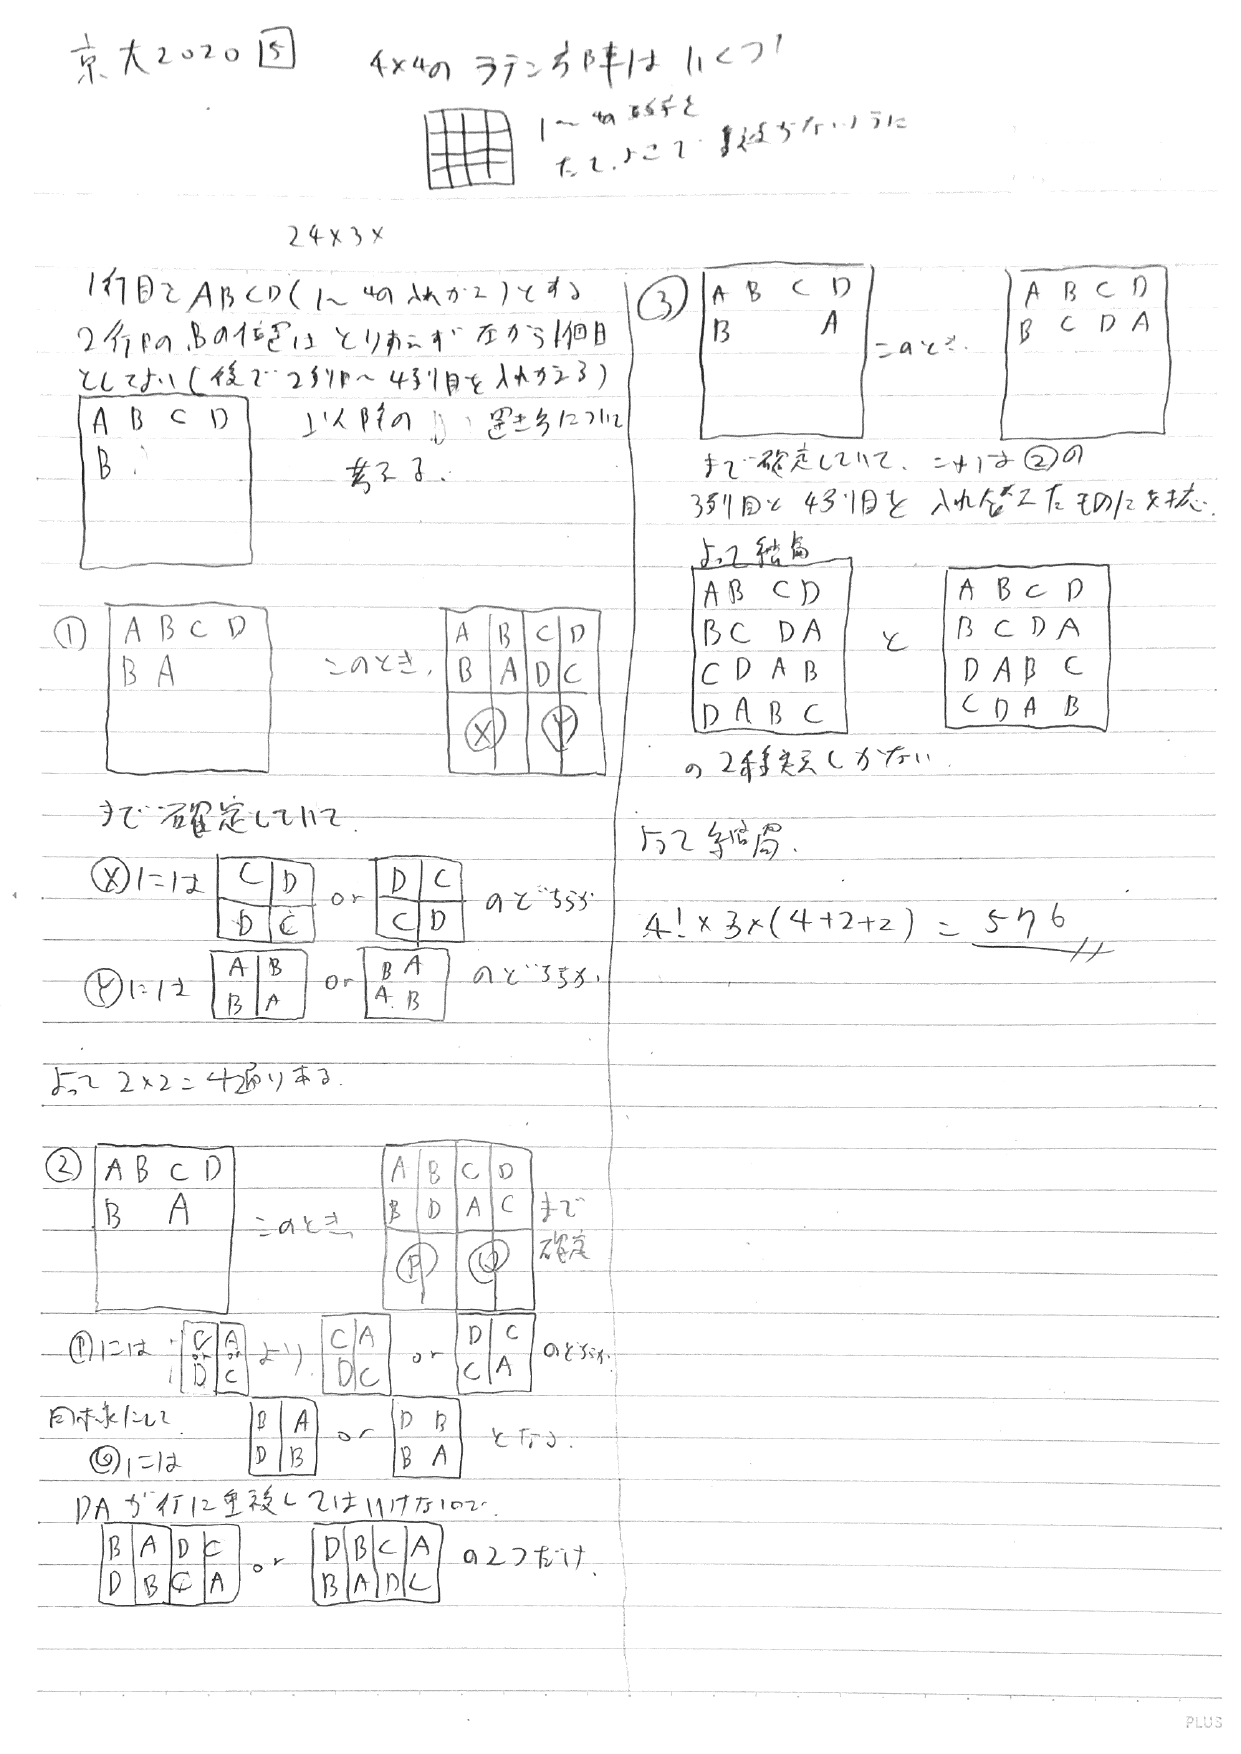 京大2020 5 4×4のラテン方陣はいくつ?
1〜4の数字を
たて、よこで重複がないように
24×3×
1行目をABCD(1〜4の入れかえ)とする
2行目のBの位置はとりあえず左から1個目
としてよい(後で2列目〜4列目を入れかえる)
A B C D
B
以降の 置き方について
考える.
① A B C D
B A
このとき,
A B C D
B A D C
X Y
まで確定していて.
Ⓧには C D or D C のどちらか
D C C D
Ⓨには A B or B A のどちらか.
B A A B
よって 2×2=4通りある.
② A B C D
B A
このとき,
A B C D
B D A C まで
確定
P Q
Ⓟには C A より, C A or D C のどちらか.
or or
D C D C C A
同様にして B A or D B となる.
Ⓠには D B B A
DAが行に重複してはいけないので.
B A D C or D B C A の2つだけ.
D B C A B A D C
③ A B C D
B A
このとき.
A B C D
B C D A
まで確定していて、これは②の
3列目と4列目を入れ替えたものに対応.
よって結局
A B C D
B C D A
C D A B
D A B C
と
A B C D
B C D A
D A B C
C D A B
の2種類しかない.
よって結局.
4!×3×(4+2+2) = 576
PLUS